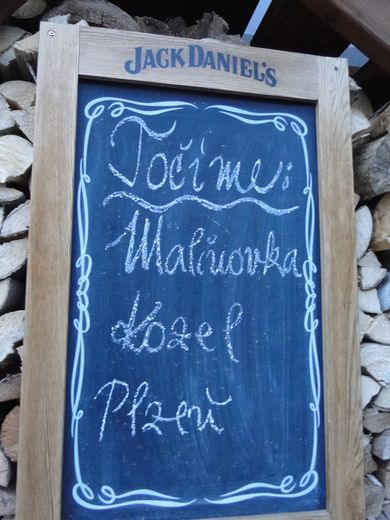 JACK DANIEL'S
Točíme:
Malinovka
Kozel
Plzeň